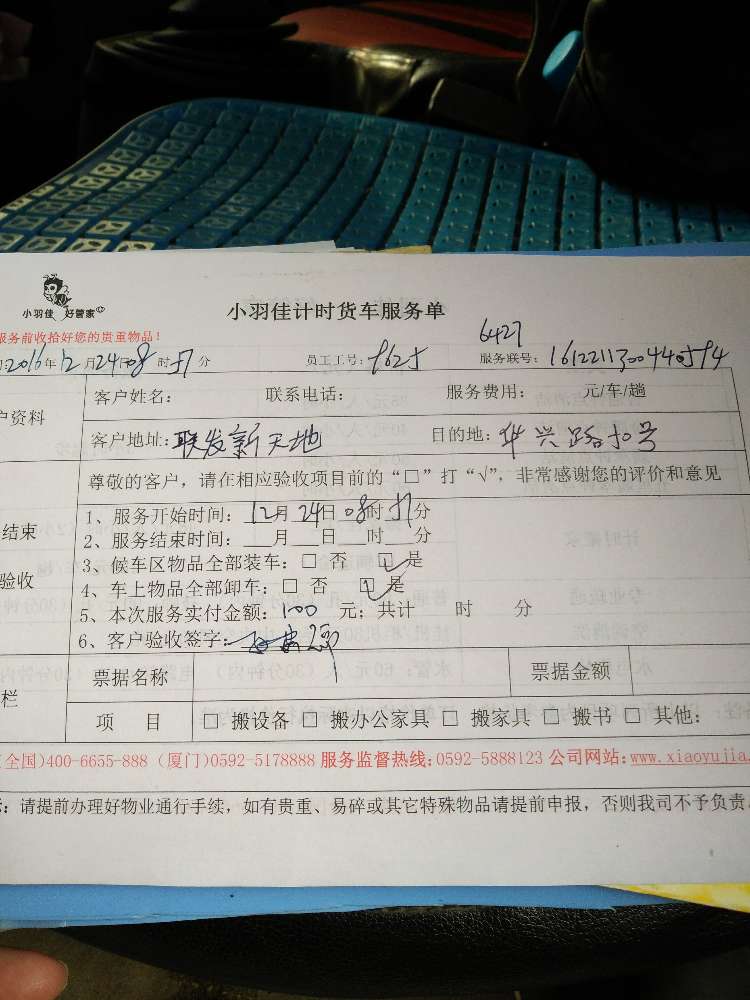 小羽佳 好管家
小羽佳计时货车服务单
服务前收拾好您的贵重物品!
6427
2016年12月24日08时57分 员工工号: 9625 服务联号: 1612211300440594
户资料
客户姓名: 联系电话: 服务费用: 元/车/趟
客户地址: 联发新天地 目的地: 华兴路10号
尊敬的客户,请在相应验收项目前的“□”打“√”,非常感谢您的评价和意见
结束
验收
1、服务开始时间: 12月24日08时57分
2、服务结束时间: 月 日 时 分
3、候车区物品全部装车: □ 否 □ 是
4、车上物品全部卸车: □ 否 □ 是
5、本次服务实付金额: 100 元; 共计 时 分
6、客户验收签字:
栏
票据名称 票据金额
项 目 □ 搬设备 □ 搬办公家具 □ 搬家具 □ 搬书 □ 其他:
(全国)400-6655-888 (厦门)0592-5178888 服务监督热线:0592-5888123 公司网站:www.xiaoyujia.
:请提前办理好物业通行手续,如有贵重、易碎或其它特殊物品请提前申报,否则我司不予负责